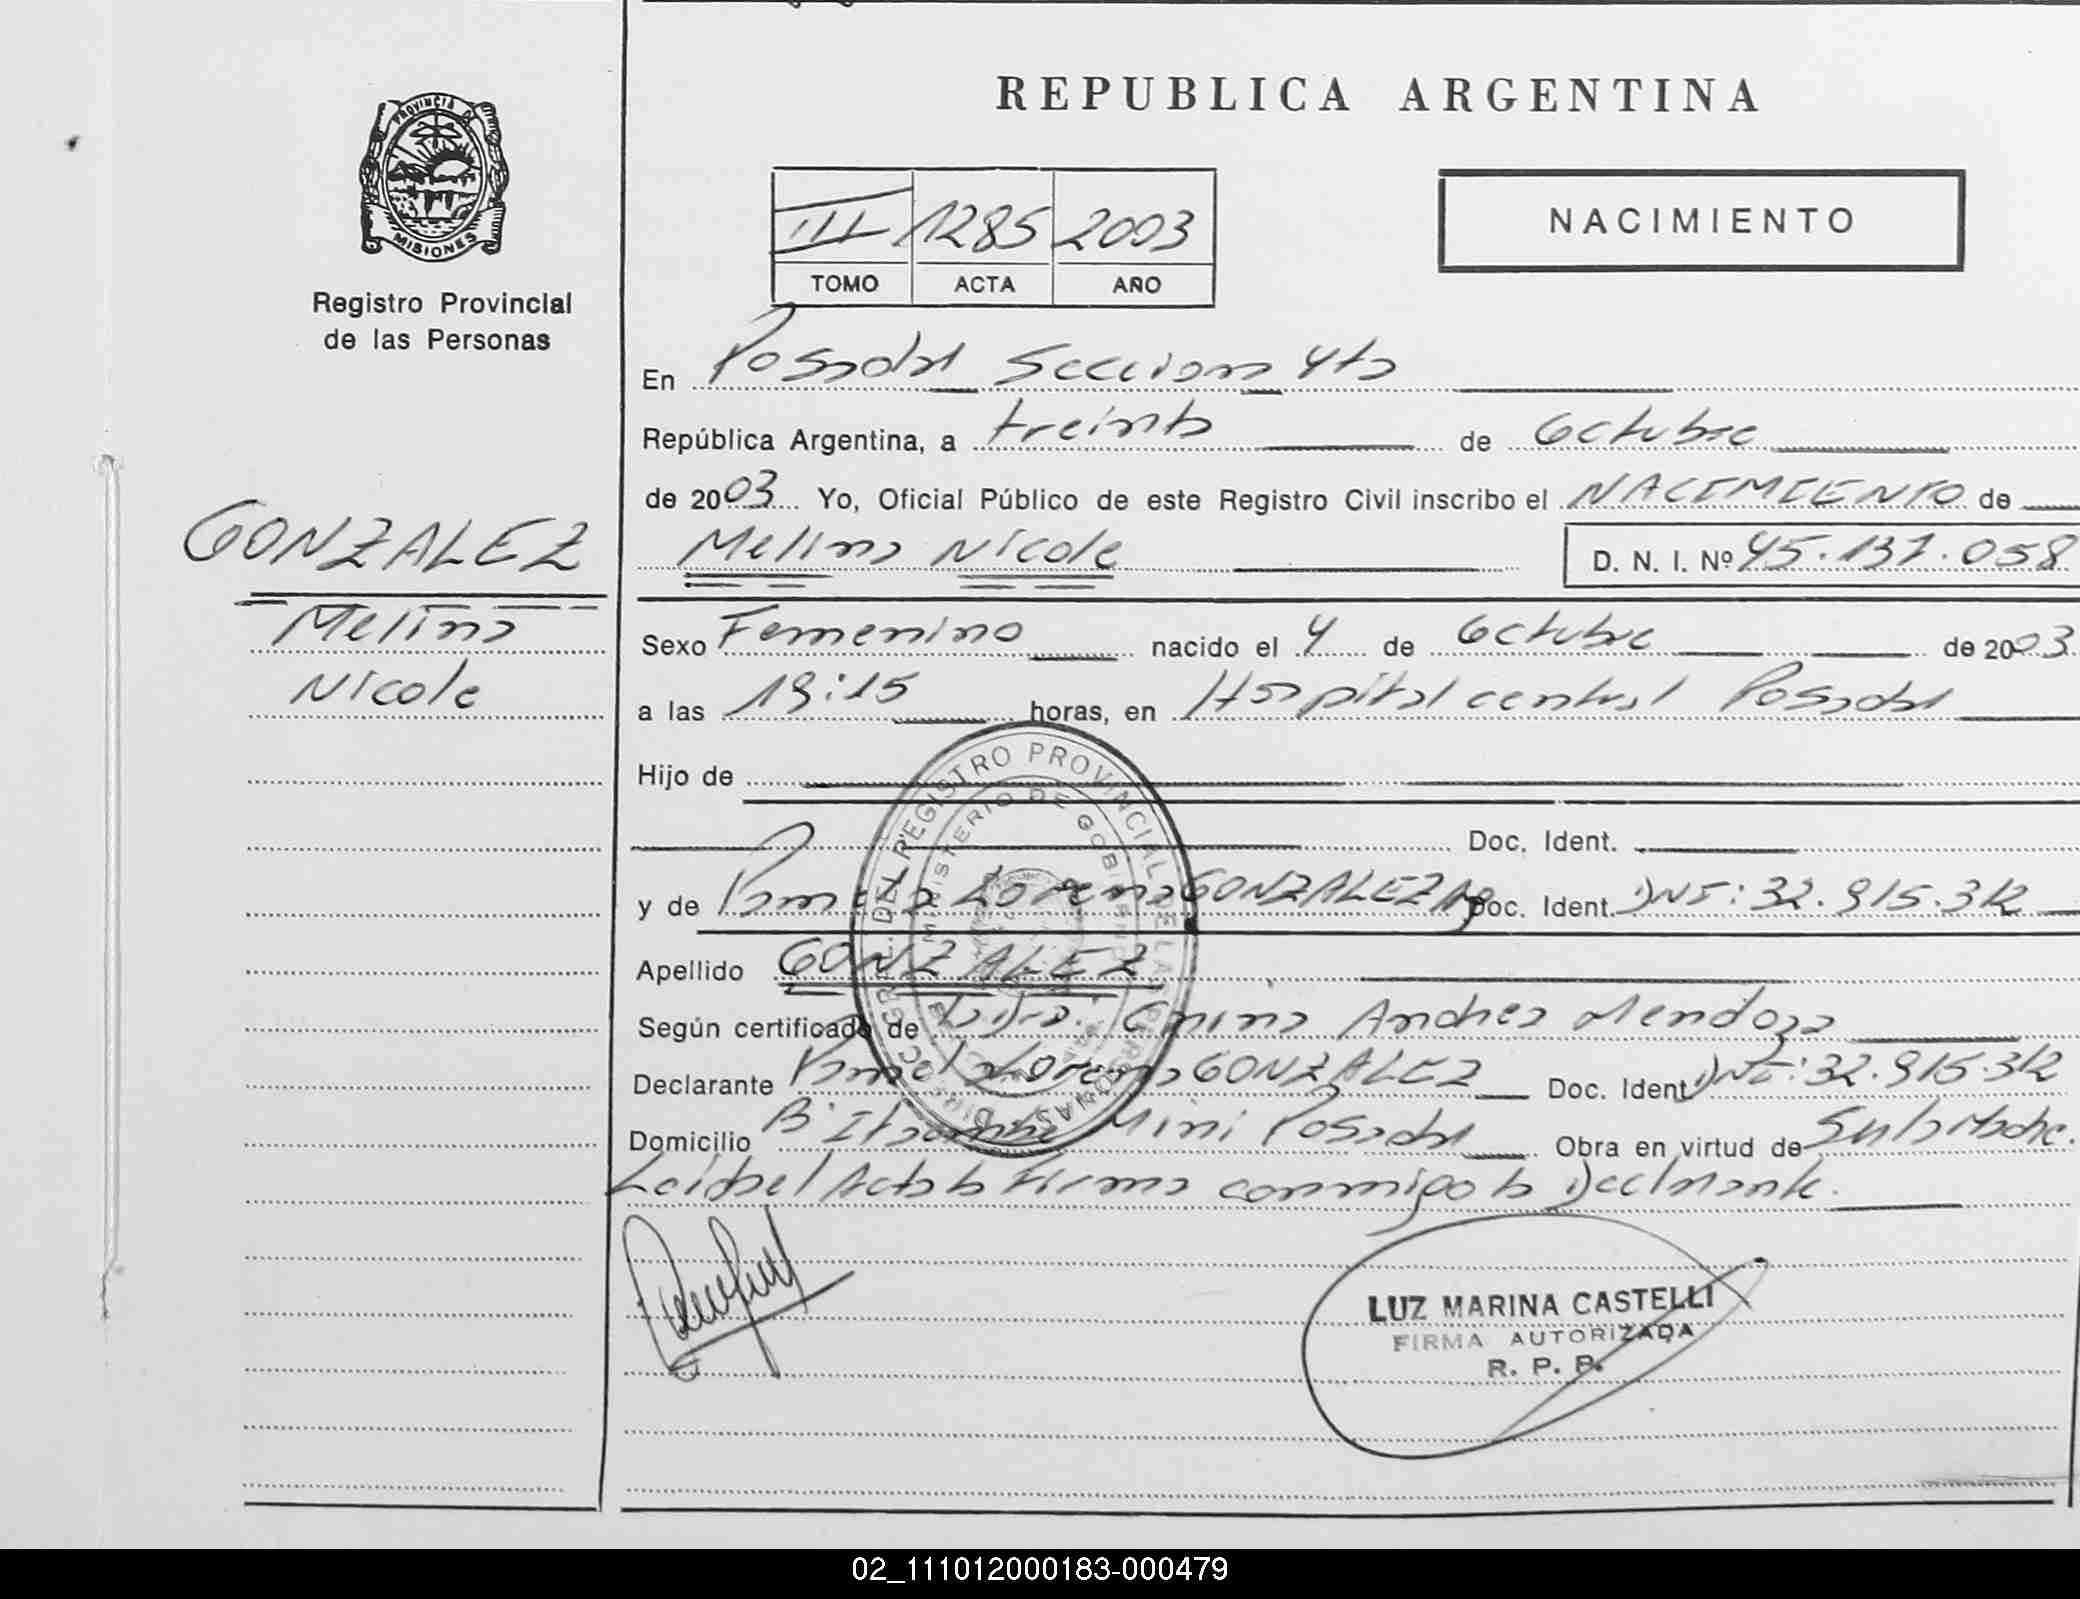 PROVINCIA DE
MISIONES
Registro Provincial
de las Personas
GONZALEZ
Melina
Nicole
REPUBLICA ARGENTINA
III 1285 2003
TOMO ACTA AÑO
NACIMIENTO
En Posadas Seccion 4ta
República Argentina, a treinta de Octubre
de 2003 Yo, Oficial Público de este Registro Civil inscribo el NACIMIENTO de
Melina Nicole D. N. I. Nº 45.137.058
Sexo Femenino nacido el 4 de Octubre de 2003
a las 19:15 horas, en Hospital central Posadas
Hijo de
Doc. Ident.
y de Pamela Lorena GONZALEZ Doc. Ident. DNI: 32.915.312
Apellido GONZALEZ
Según certificado de la Dra. Andrea Mendoza
Declarante Pamela Lorena GONZALEZ Doc. Ident DNI: 32.915.312
Domicilio B° Mini Posadas Obra en virtud de Ser la Madre.
Leida el Acta la Firma conmigo la Declarante.
DEL REGISTRO PROVINCIAL DE LAS PERSONAS
MINISTERIO DE GOBIERNO
LUZ MARINA CASTELLI
FIRMA AUTORIZADA
R. P. P.
02_111012000183-000479